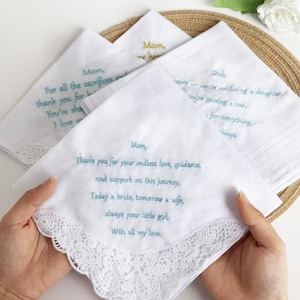 Mom,
For all the sacrifices
thank you for
You've
I love
Mom,
Dad,
you're not losing a daughter,
gaining a son.
for everything.
always,
Mom,
Thank you for your endless love, guidance,
and support on this journey,
Today a bride, tomorrow a wife,
always your little girl,
With all my love,